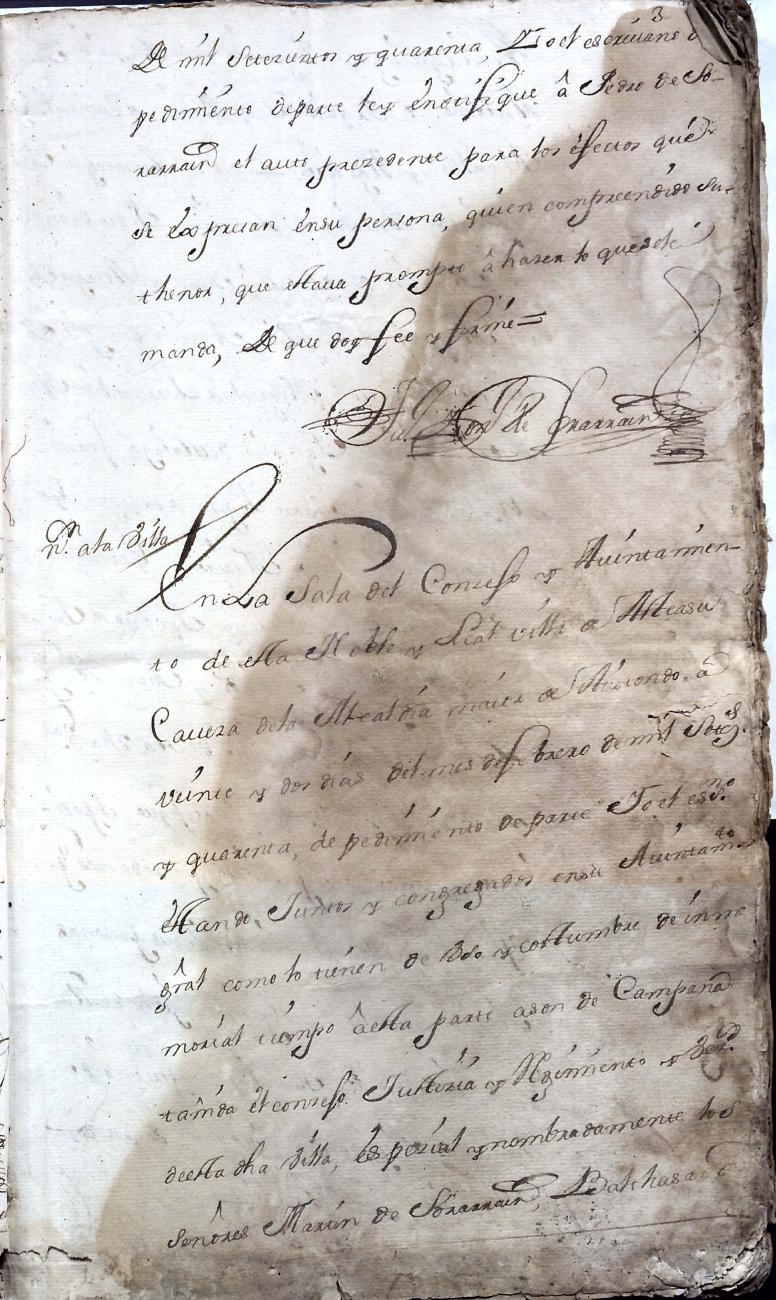 3
De mil setezientos y quarenta, Yo el escrivano
pedimiento de parte ley e notifique â Pedro de So-
rarrain el auto prezedente para los efectos que
se expresan en su persona, quien comprendido su
thenor, que estava prompto â hazer lo que se le
manda, De que doy fee y firmé =
de Sorarrain
n.n a la Villa
En La Sala del Consejo y Auintamien-
to de esta Noble y Leal villa de Alteasu
Cavera de la Alcaldia maior de Aiztondo â
veinte y dos dias del mes de febrero de mil Setez.s
y quarenta, de pedimiento de parte Yo el ess.no
estando Juntos y congregados en su Auintam.to
gral como lo tienen de Vso y costtumbre de inme
morial tiempo â esta parte a son de Campana
tanida el consejo Justizia y Regimiento y Vez.
de esta dha Villa, espezial y nombradamente los
señores Martin de Sorarrain, Balthasar de